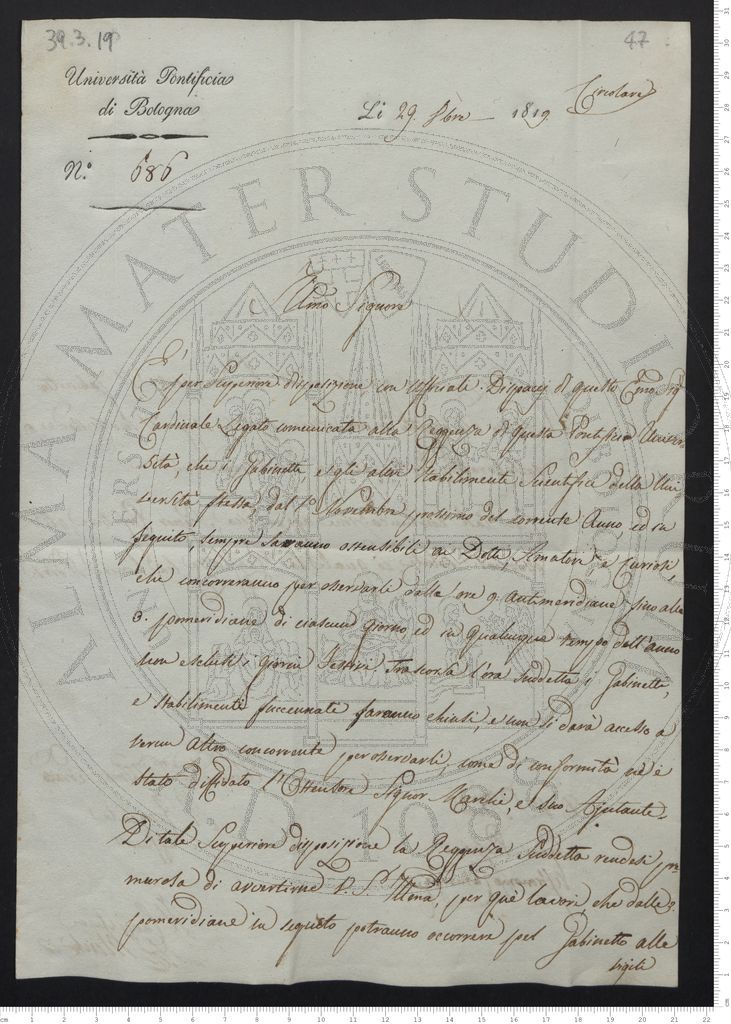 39.3.19
47
Università Pontificia
di Bologna
Li 29. 8bre 1819.
Circolare
N.° 686
Illmo Signore
E' per Superiore disposizione con Officiale Dispaccio di questo Emo Sigr
Cardinale Legato comunicata alla Reggenza di questa Pontificia Univer
sità, che i Gabinetti, e gli altri Stabilimenti Scientifici della Uni
versità stessa dal 1° Novembre prossimo del corrente Anno, ed in
seguito, sempre saranno ostensibili ai Dotti, Amatori e Curiosi,
che concorreranno per osservarli dalle ore 9. antimeridiane fino alle
3. pomeridiane di ciascun giorno, ed in qualunque tempo dell'anno
non esclusi i giorni festivi. Trascorsa l'ora suddetta i Gabinetti,
e Stabilimenti succennati saranno chiusi, e non si darà accesso a
verun altro concorrente per osservarli, come di conformità ne è
stato diffidato l'Ostensore Signor Marchi, e suo Ajutante.
Di tale Superiore disposizione la Reggenza suddetta rendesi pre
murosa di avvertirne V. S. Illma, per que' lavori, che dalle 3.
pomeridiane in seguito potranno occorrere pel Gabinetto alle
ALMA MATER STUDIORUM
A.D. 1088